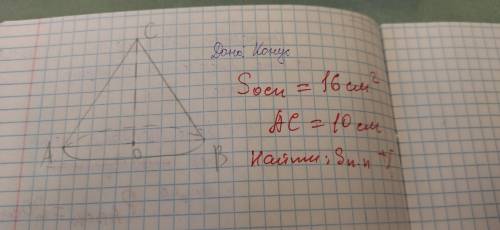 C
Дано: Конус
Sосн = 16 см²
AC = 10 см
A
O
B
Найти: Sп.п